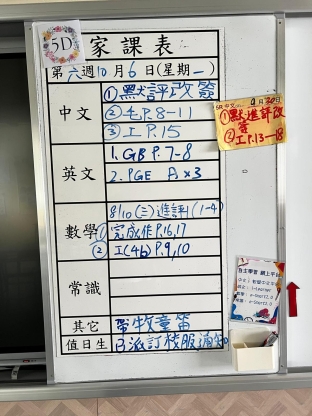 5D
家課表
第六週10月6日(星期一)
中文
①默評改簽
②乇P.8-11
③工P.15
英文
1. GB P.7-8
2. PGE A x3
8/10 (三)進評1 (1-4)
數學
①完成作P.16,17
②工(4b) P.9,10
常識
其它
帶牧童笛
值日生
已派訂校服通知
9月30日
①默進評改
簽
②工P.13-18
自主學習 網上平台